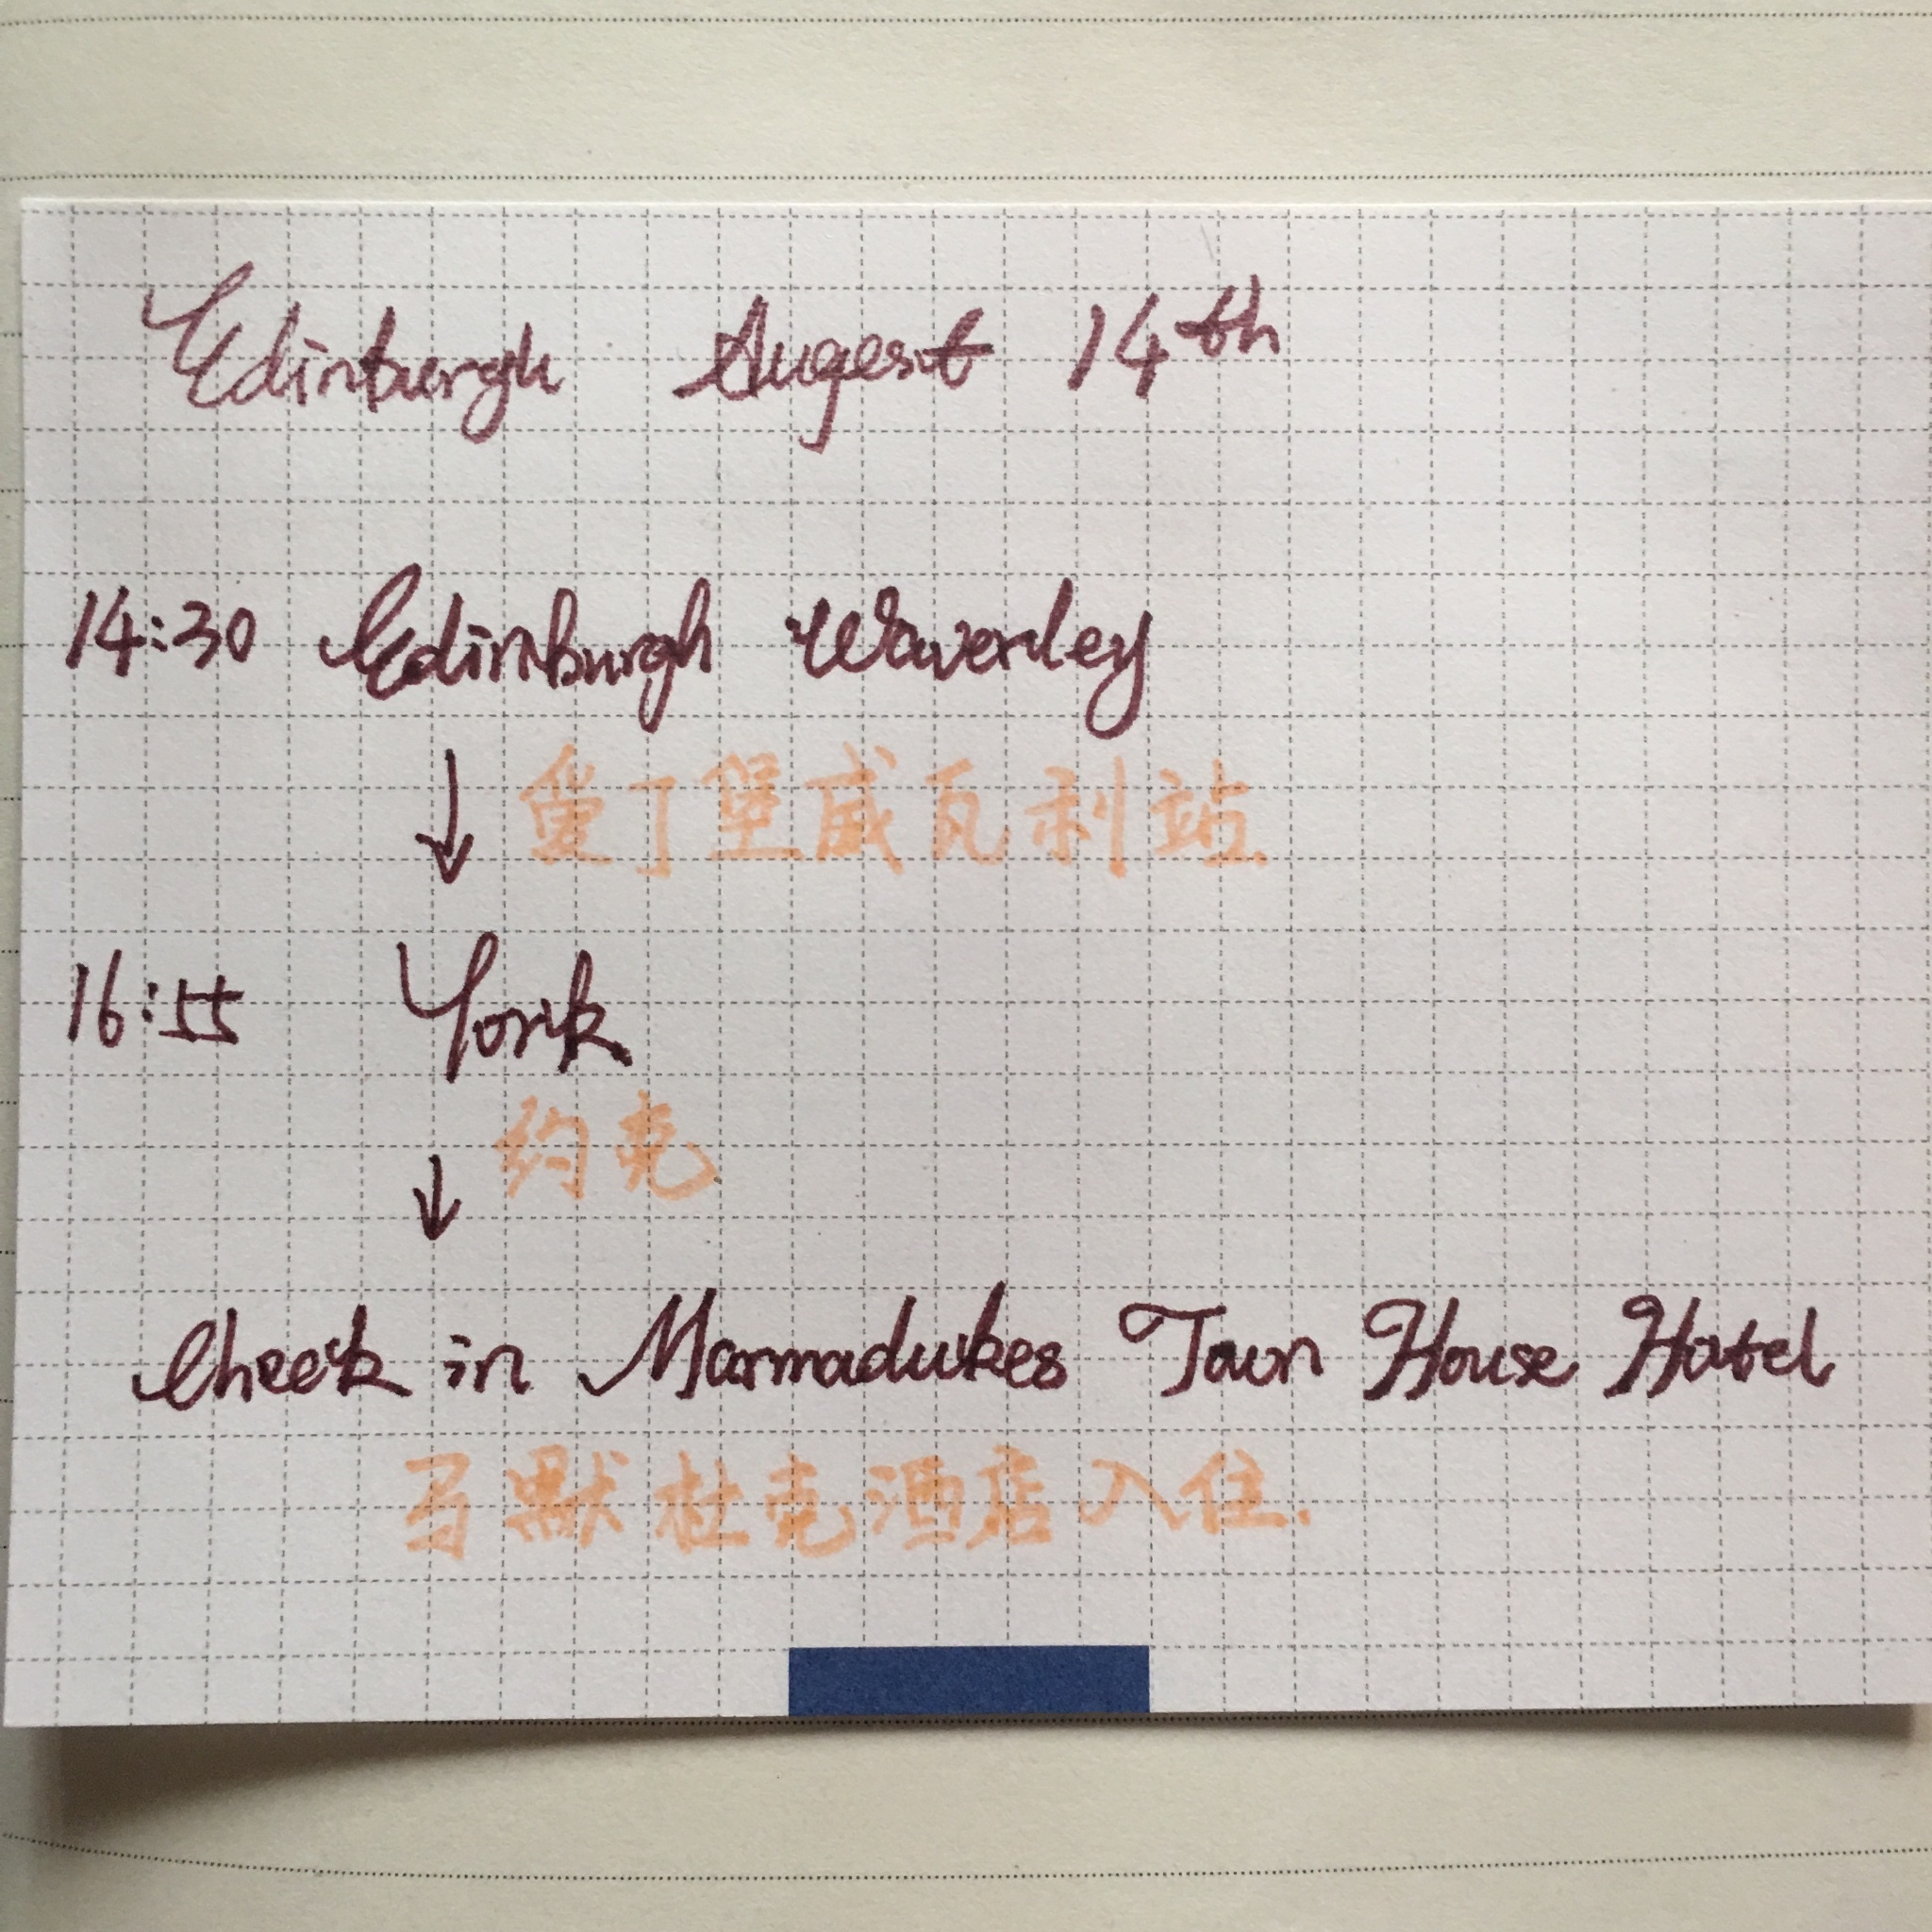 Edinburgh Augest 14th
14:30 Edinburgh Waverley
爱丁堡威瓦利站
16:55 York
约克
Check in Marmadukes Town House Hotel
马默杜克酒店入住.